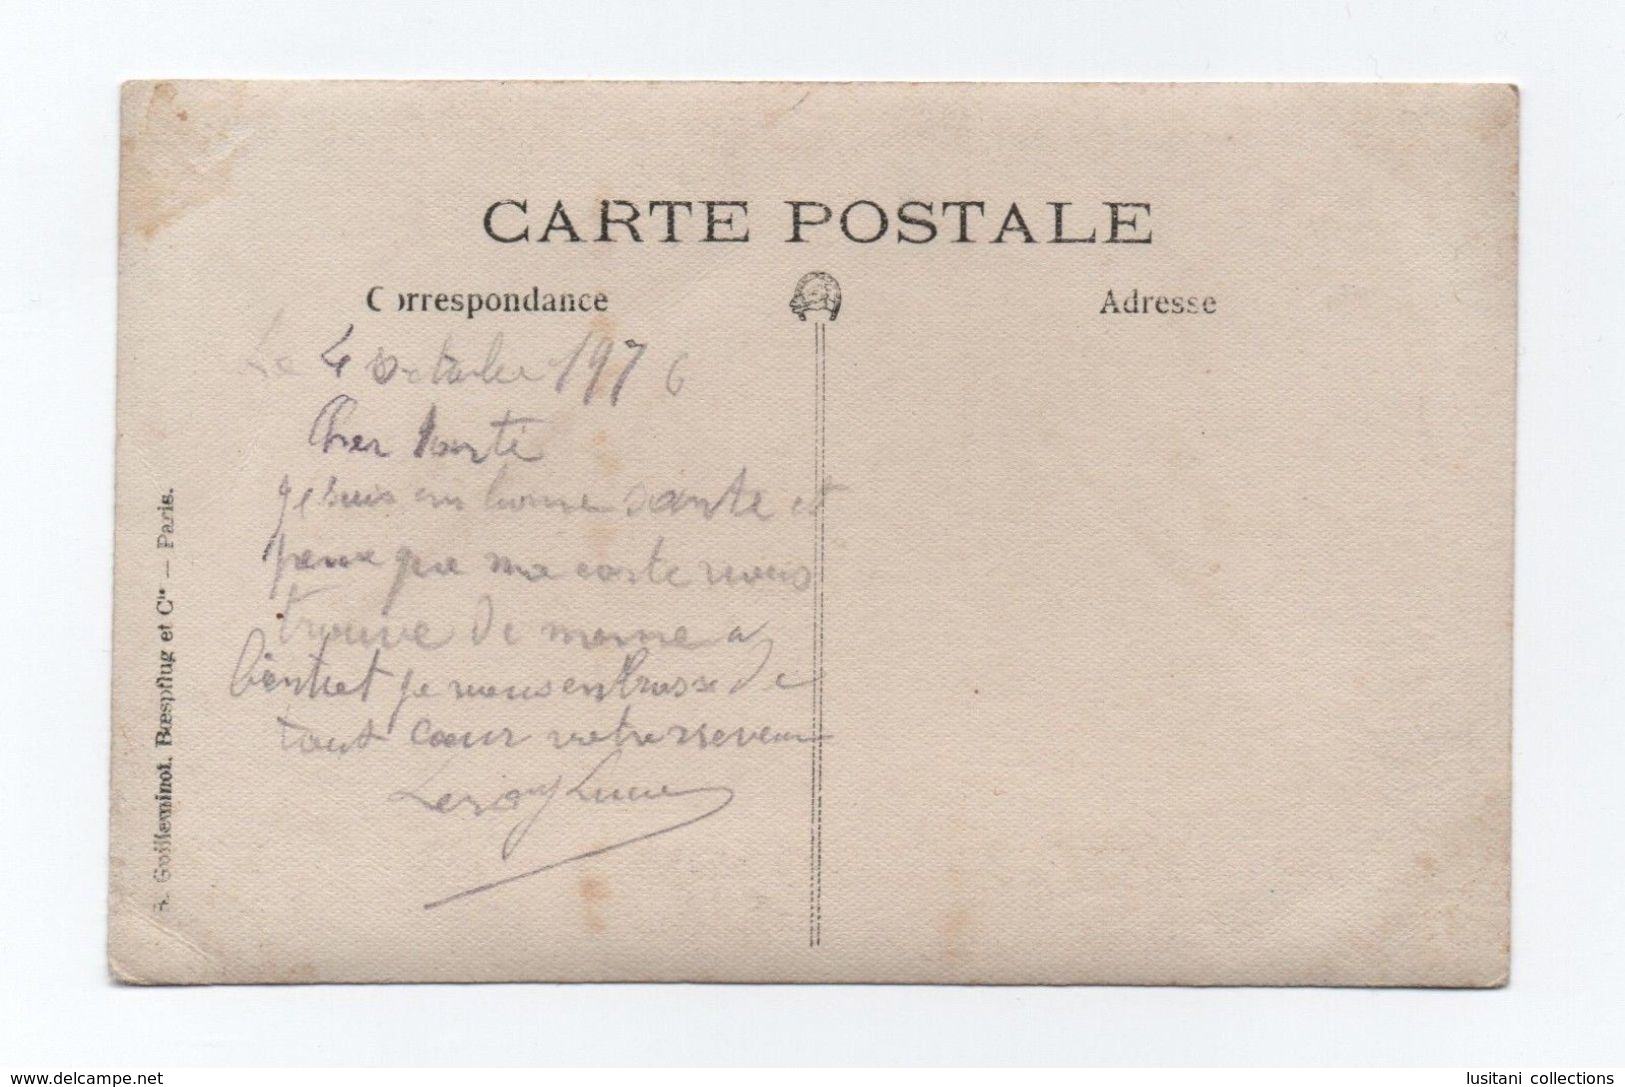 CARTE POSTALE
Correspondance
Adresse
Le 4 octobre 1916
Cher tante
je suis en bonne sante et
pense que ma carte vous
trouve de meme a
bientot je vous embrasse de
tout cœur votre neveu
Leroy Lucien
R. Guilleminot, Bœspflug et Cie — Paris.
www.delcampe.net
lusitani collections